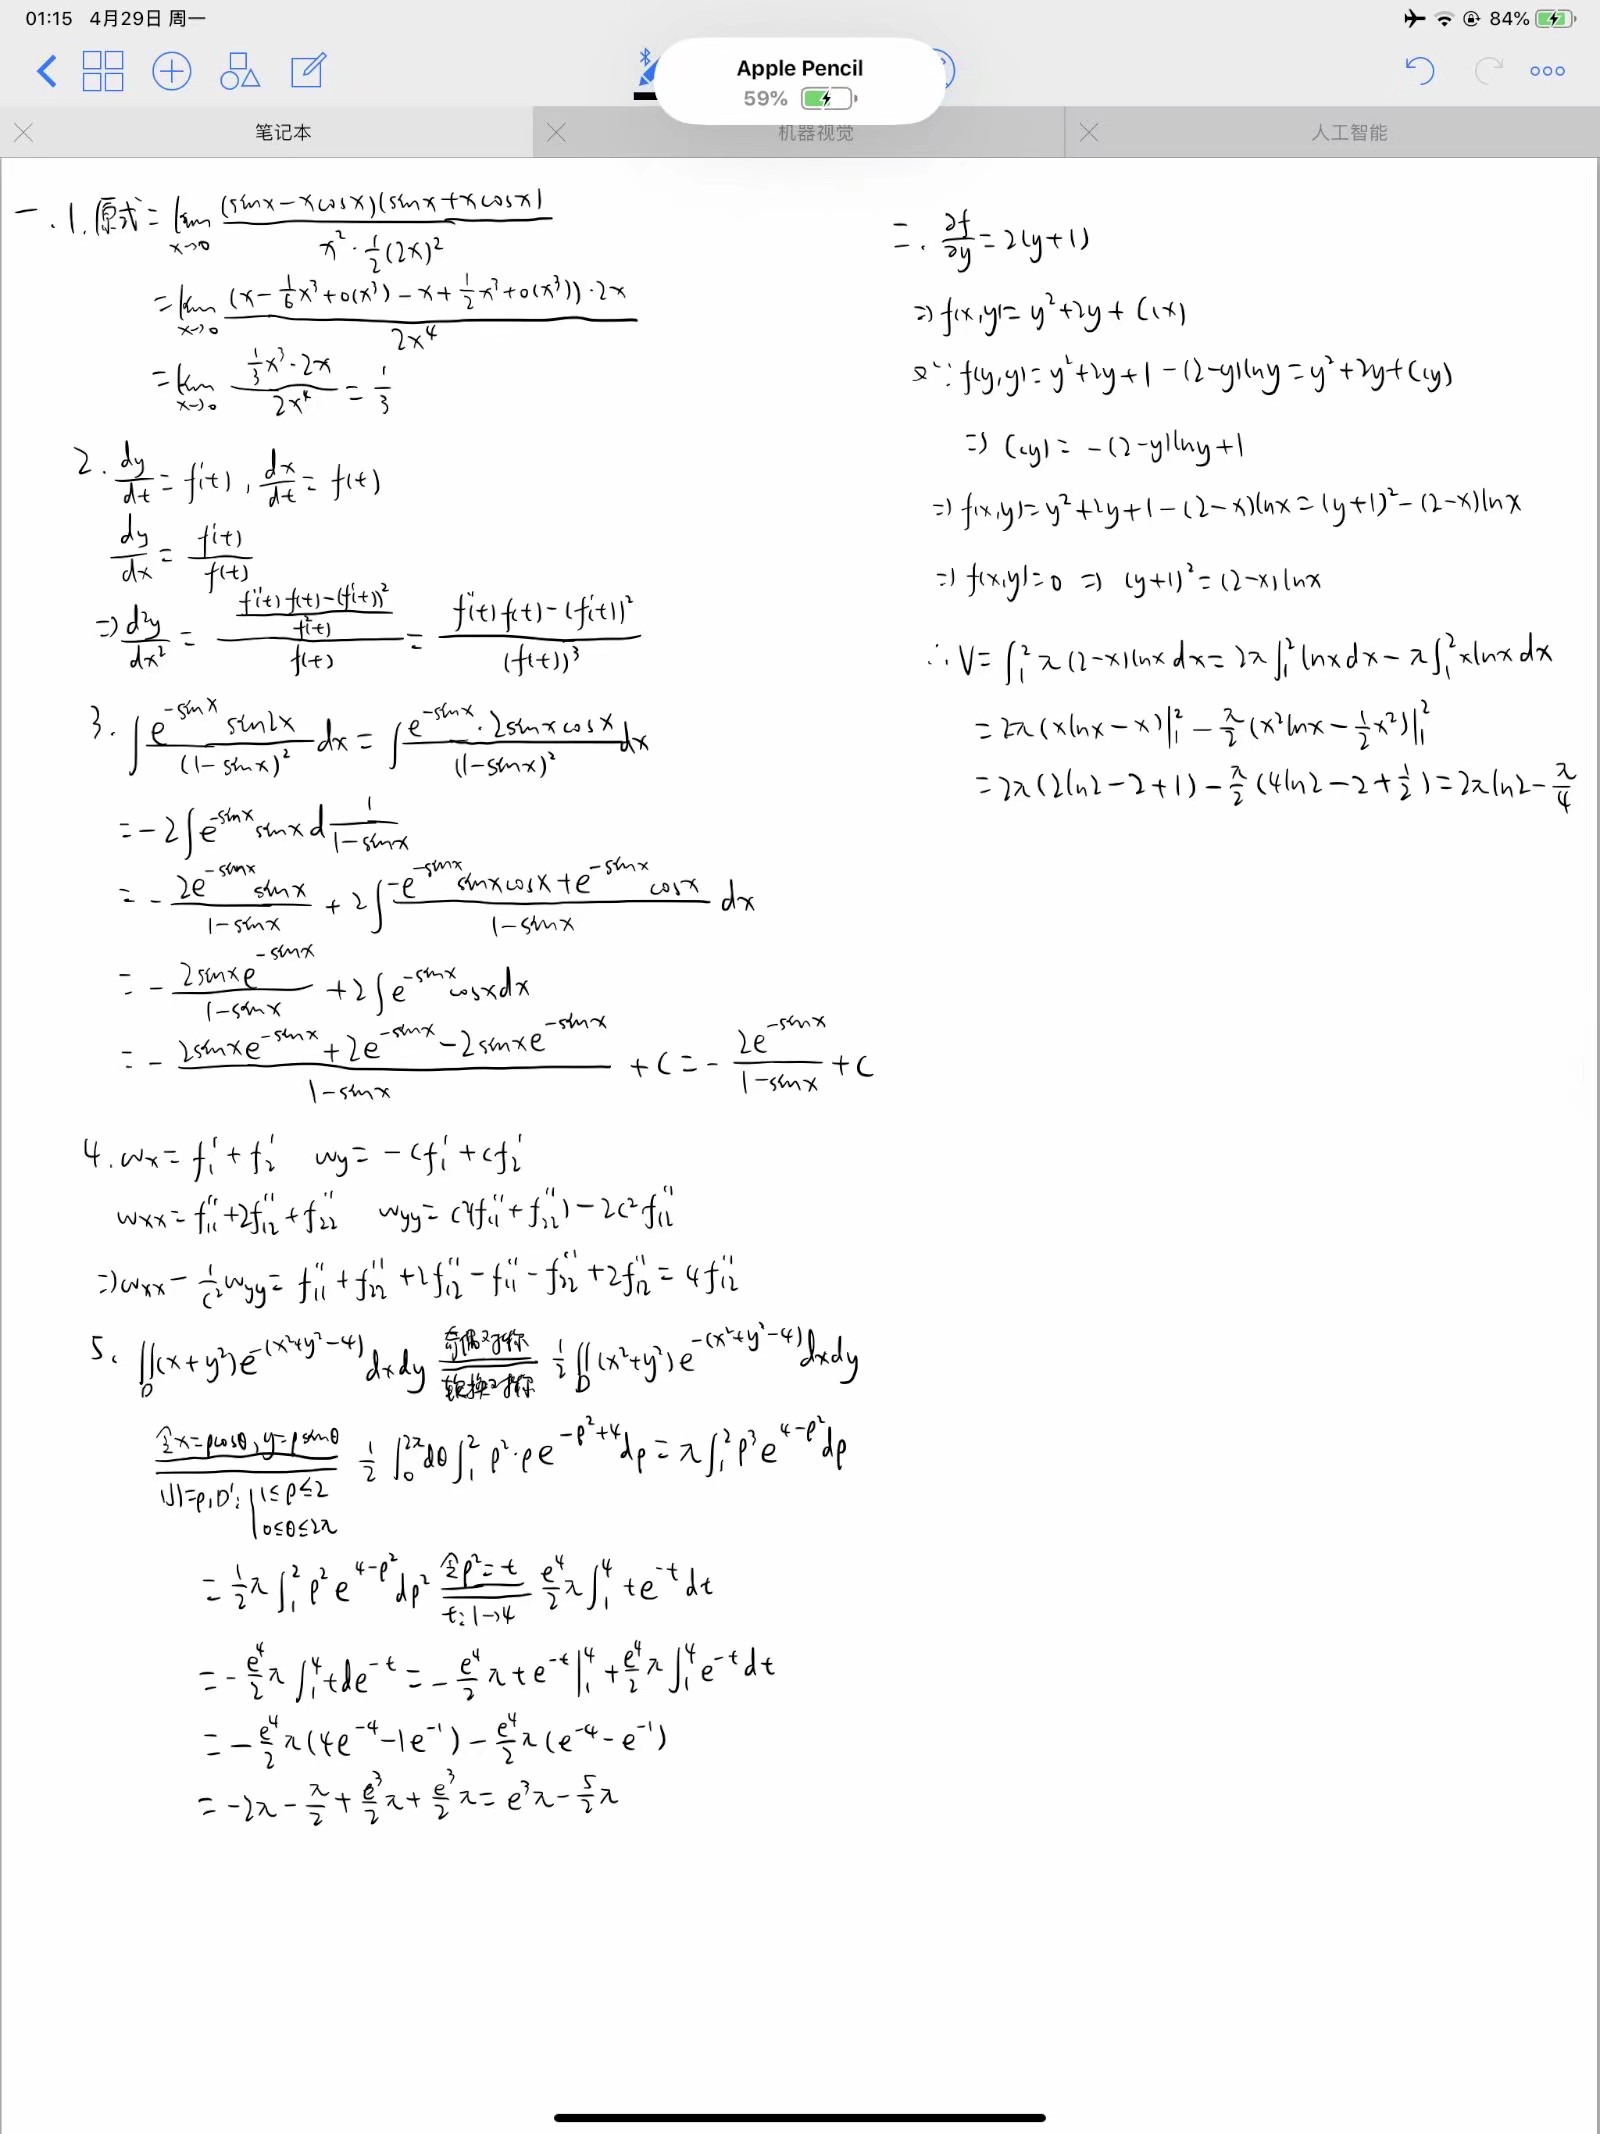 01:15 4月29日 周一
84%
Apple Pencil
59%
笔记本
机器视觉
人工智能
一. 1. 原式 = lim_{x→0} (sinx-xcosx)(sinx+xcosx) / (x²·½(2x)²)
= lim_{x→0} (x-⅙x³+o(x³)-x+½x³+o(x³))·2x / 2x⁴
= lim_{x→0} (⅓x³·2x) / 2x⁴ = ⅓
2. dy/dt = f'(t), dx/dt = f(t)
dy/dx = f'(t) / f(t)
⇒ d²y/dx² = ((f''(t)f(t)-(f'(t))²) / f²(t)) / f(t) = (f''(t)f(t)-(f'(t))²) / (f(t))³
3. ∫ e^{-sinx}sin2x / (1-sinx)² dx = ∫ e^{-sinx}·2sinxcosx / (1-sinx)² dx
= -2∫e^{-sinx}sinx d 1/(1-sinx)
= - 2e^{-sinx}sinx / (1-sinx) + 2∫ (-e^{-sinx}sinxcosx+e^{-sinx}cosx) / (1-sinx) dx
= - 2sinxe^{-sinx} / (1-sinx) + 2∫e^{-sinx}cosxdx
= - (2sinxe^{-sinx}+2e^{-sinx}-2sinxe^{-sinx}) / (1-sinx) + C = - 2e^{-sinx} / (1-sinx) + C
4. wx = f₁' + f₂' wy = -cf₁' + cf₂'
wxx = f₁₁''+2f₁₂''+f₂₂'' wyy = c²(f₁₁''+f₂₂'')-2c²f₁₂''
⇒ wxx - 1/c² wyy = f₁₁''+f₂₂''+2f₁₂''-f₁₁''-f₂₂''+2f₁₂'' = 4f₁₂''
5. ∬_D (x+y²)e^{-(x²+y²-4)}dxdy 奇偶对称 轮换对称 ½∬_D (x²+y²)e^{-(x²+y²-4)}dxdy
令x=ρcosθ, y=ρsinθ |J|=ρ, D': 1≤ρ≤2 0≤θ≤2π ½∫₀^{2π}dθ∫₁²ρ²·ρe^{-ρ²+4}dρ = π∫₁²ρ³e^{4-ρ²}dρ
= ½π∫₁²ρ²e^{4-ρ²}dρ² 令ρ²=t t:1→4 e⁴/2 π∫₁⁴te^{-t}dt
= -e⁴/2 π∫₁⁴tde^{-t} = -e⁴/2 πte^{-t}|₁⁴ + e⁴/2 π∫₁⁴e^{-t}dt
= -e⁴/2 π(4e^{-4}-1e^{-1}) - e⁴/2 π(e^{-4}-e^{-1})
= -2π - π/2 + e³/2 π + e³/2 π = e³π - 5/2 π
二. ∂f/∂y = 2(y+1)
⇒ f(x,y) = y²+2y+C(x)
又∵ f(y,y) = y²+2y+1-(2-y)lny = y²+2y+C(y)
⇒ C(y) = -(2-y)lny+1
⇒ f(x,y) = y²+2y+1-(2-x)lnx = (y+1)²-(2-x)lnx
⇒ f(x,y)=0 ⇒ (y+1)² = (2-x)lnx
∴ V = ∫₁²π(2-x)lnxdx = 2π∫₁²lnxdx - π∫₁²xlnxdx
= 2π(xlnx-x)|₁² - π/2 (x²lnx-½x²)|₁²
= 2π(2ln2-2+1) - π/2 (4ln2-2+½) = 2πln2 - π/4